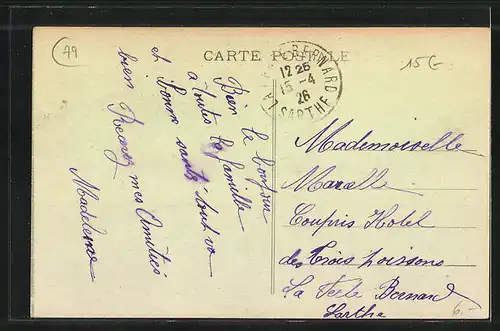 49
CARTE POSTALE
15 G-
LA FERTE BERNARD
12 25
15 -4
26
SARTHE
Bien le bonjour
a toutes la famille
et bonne santé tout va
bien Recevez mes Amitiés
Madeleine
Mademoiselle
Marcelle
Coupris Hotel
des Trois poissons
La Ferte Bernard
Sarthe
6.-